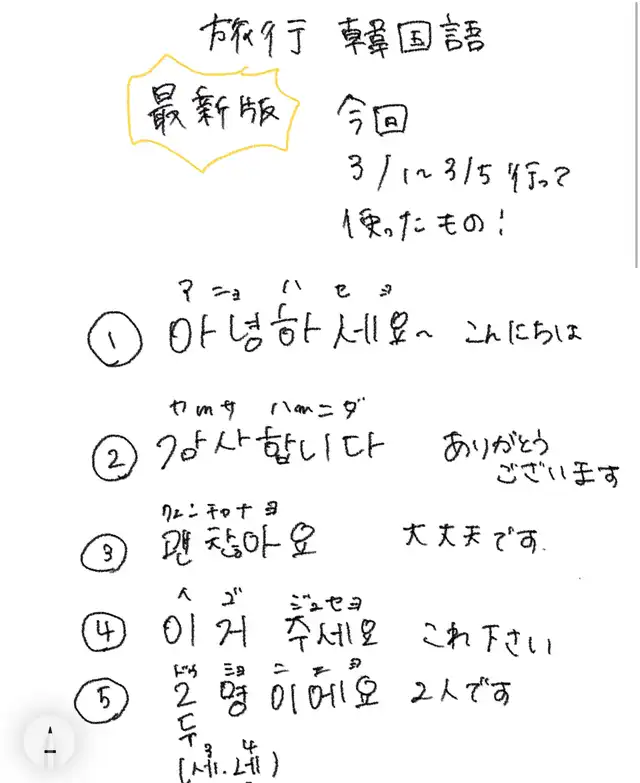 旅行 韓国語
最新版
今回
3/1~3/5 行って
使ったもの!
アニョ ハ セ ヨ
① 아녕하세요~ こんにちは
カmサ ハmニダ
② 감사합니다 ありがとう
ございます
クェンチャナヨ
③ 괜찮아요 大丈夫です.
イ ゴ ジュセヨ
④ 이거 주세요 これ下さい
ドゥ ミョ ニ エ ヨ
⑤ 2 명이에요 2人です
두
3 4
(세.네)